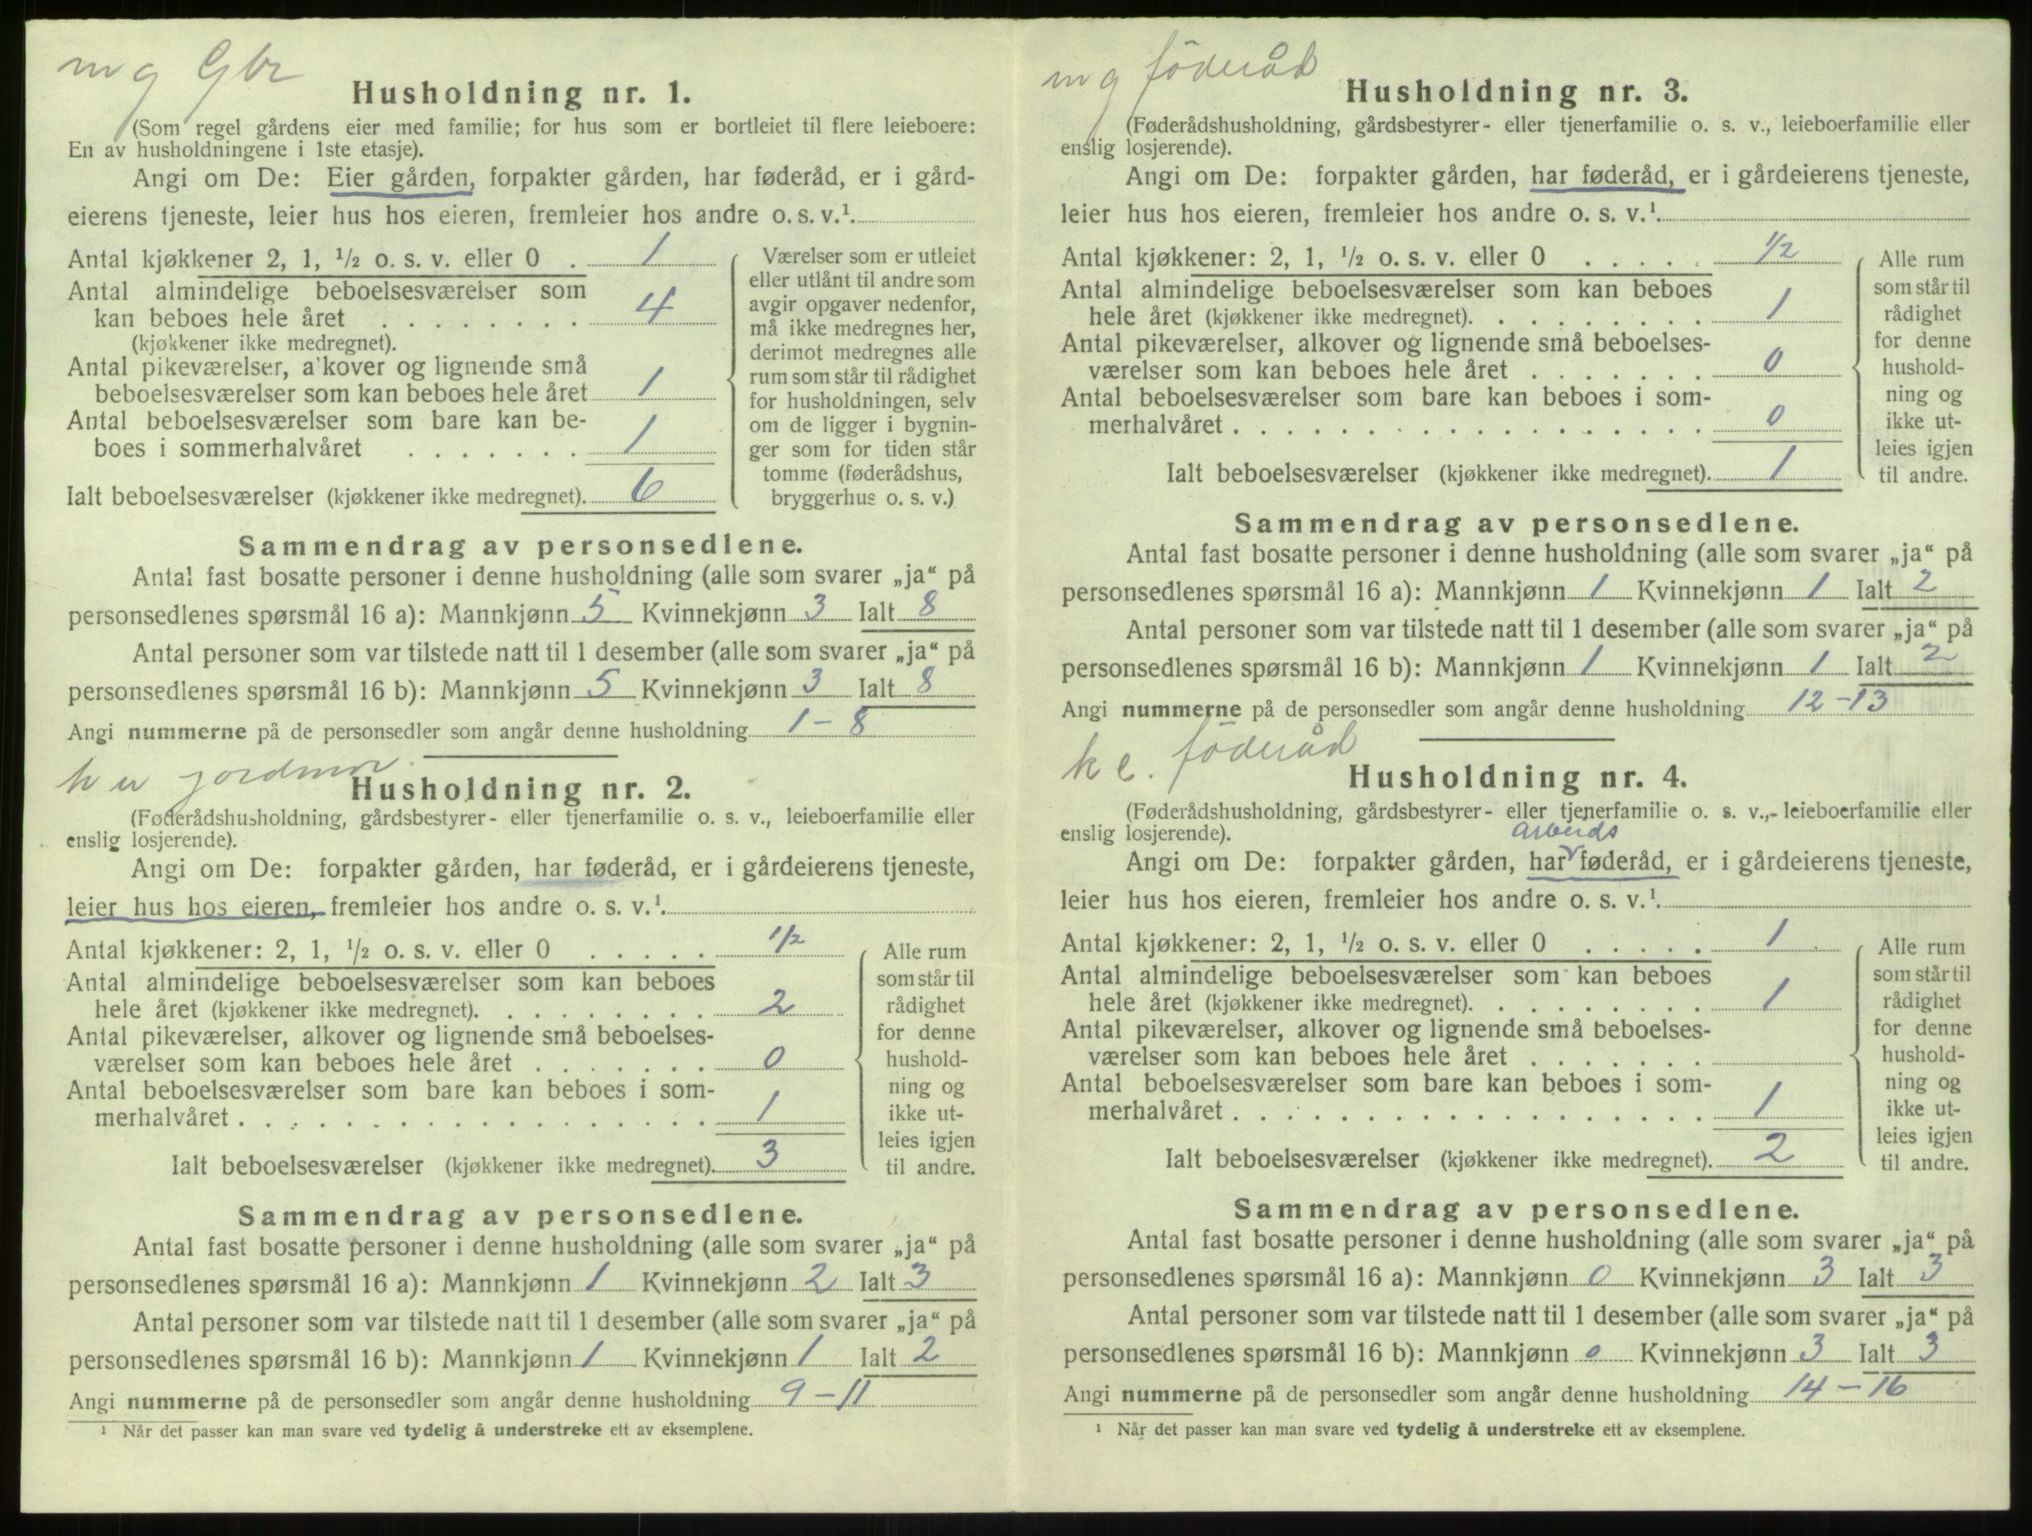 m g Gbr
Husholdning nr. 1.
(Som regel gårdens eier med familie; for hus som er bortleiet til flere leieboere:
En av husholdningene i 1ste etasje).
Angi om De: Eier gården, forpakter gården, har føderåd, er i gård-
eierens tjeneste, leier hus hos eieren, fremleier hos andre o. s. v.¹
Antal kjøkkener 2, 1, ½ o. s. v. eller 0 . 1
Antal almindelige beboelsesværelser som
kan beboes hele året . . . . . . . . 4
(kjøkkener ikke medregnet).
Antal pikeværelser, a'kover og lignende små
beboelsesværelser som kan beboes hele året 1
Antal beboelsesværelser som bare kan be-
boes i sommerhalvåret . . . . . . . 1
Ialt beboelsesværelser (kjøkkener ikke medregnet). 6
Værelser som er utleiet
eller utlånt til andre som
avgir opgaver nedenfor,
må ikke medregnes her,
derimot medregnes alle
rum som står til rådighet
for husholdningen, selv
om de ligger i bygnin-
ger som for tiden står
tomme (føderådshus,
bryggerhus o. s. v.)
Sammendrag av personsedlene.
Antal fast bosatte personer i denne husholdning (alle som svarer „ja“ på
personsedlenes spørsmål 16 a): Mannkjønn 5 Kvinnekjønn 3 Ialt 8
Antal personer som var tilstede natt til 1 desember (alle som svarer „ja“ på
personsedlenes spørsmål 16 b): Mannkjønn 5 Kvinnekjønn 3 Ialt 8
Angi nummerne på de personsedler som angår denne husholdning 1 - 8
jordmor
Husholdning nr. 2.
(Føderådshusholdning, gårdsbestyrer- eller tjenerfamilie o. s. v., leieboerfamilie eller
enslig losjerende).
Angi om De: forpakter gården, har føderåd, er i gårdeierens tjeneste,
leier hus hos eieren, fremleier hos andre o. s. v.¹
Antal kjøkkener: 2, 1, ½ o. s. v. eller 0 . . . . . ½
Antal almindelige beboelsesværelser som kan beboes
hele året (kjøkkener ikke medregnet). . . . . . . . . 2
Antal pikeværelser, alkover og lignende små beboelses-
værelser som kan beboes hele året . . . . . . . 0
Antal beboelsesværelser som bare kan beboes i som-
merhalvåret . . . . . . . . . . . . . . . . . . 1
Ialt beboelsesværelser (kjøkkener ikke medregnet). 3
Alle rum
som står til
rådighet
for denne
hushold-
ning og
ikke ut-
leies igjen
til andre.
Sammendrag av personsedlene.
Antal fast bosatte personer i denne husholdning (alle som svarer „ja“ på
personsedlenes spørsmål 16 a): Mannkjønn 1 Kvinnekjønn 2 Ialt 3
Antal personer som var tilstede natt til 1 desember (alle som svarer „ja“ på
personsedlenes spørsmål 16 b): Mannkjønn 1 Kvinnekjønn 1 Ialt 2
Angi nummerne på de personsedler som angår denne husholdning 9 - 11
¹ Når det passer kan man svare ved tydelig å understreke ett av eksemplene.
m g föderåd
Husholdning nr. 3.
(Føderådshusholdning, gårdsbestyrer- eller tjenerfamilie o. s. v., leieboerfamilie eller
enslig losjerende).
Angi om De: forpakter gården, har føderåd, er i gårdeierens tjeneste,
leier hus hos eieren, fremleier hos andre o. s. v.¹
Antal kjøkkener: 2, 1, ½ o. s. v. eller 0 . . . . . ½
Antal almindelige beboelsesværelser som kan beboes
hele året (kjøkkener ikke medregnet). . . . . . . . . 1
Antal pikeværelser, alkover og lignende små beboelses-
værelser som kan beboes hele året . . . . . . . 0
Antal beboelsesværelser som bare kan beboes i som-
merhalvåret . . . . . . . . . . . . . . . . . . 0
Ialt beboelsesværelser (kjøkkener ikke medregnet). 1
Alle rum
som står til
rådighet
for denne
hushold-
ning og
ikke ut-
leies igjen
til andre.
Sammendrag av personsedlene.
Antal fast bosatte personer i denne husholdning (alle som svarer „ja“ på
personsedlenes spørsmål 16 a): Mannkjønn 1 Kvinnekjønn 1 Ialt 2
Antal personer som var tilstede natt til 1 desember (alle som svarer „ja“ på
personsedlenes spørsmål 16 b): Mannkjønn 1 Kvinnekjønn 1 Ialt 2
Angi nummerne på de personsedler som angår denne husholdning 12 - 13
k e. föderåd
Husholdning nr. 4.
(Føderådshusholdning, gårdsbestyrer- eller tjenerfamilie o. s. v., leieboerfamilie eller
enslig losjerende).
arbeids
Angi om De: forpakter gården, har føderåd, er i gårdeierens tjeneste,
leier hus hos eieren, fremleier hos andre o. s. v.¹
Antal kjøkkener: 2, 1, ½ o. s. v. eller 0 . . . . . 1
Antal almindelige beboelsesværelser som kan beboes
hele året (kjøkkener ikke medregnet). . . . . . . . . 1
Antal pikeværelser, alkover og lignende små beboelses-
værelser som kan beboes hele året . . . . . . .
Antal beboelsesværelser som bare kan beboes i som-
merhalvåret . . . . . . . . . . . . . . . . . . 1
Ialt beboelsesværelser (kjøkkener ikke medregnet). 2
Alle rum
som står til
rådighet
for denne
hushold-
ning og
ikke ut-
leies igjen
til andre.
Sammendrag av personsedlene.
Antal fast bosatte personer i denne husholdning (alle som svarer „ja“ på
personsedlenes spørsmål 16 a): Mannkjønn 0 Kvinnekjønn 3 Ialt 3
Antal personer som var tilstede natt til 1 desember (alle som svarer „ja“ på
personsedlenes spørsmål 16 b): Mannkjønn 0 Kvinnekjønn 3 Ialt 3
Angi nummerne på de personsedler som angår denne husholdning 14 - 16
¹ Når det passer kan man svare ved tydelig å understreke ett av eksemplene.